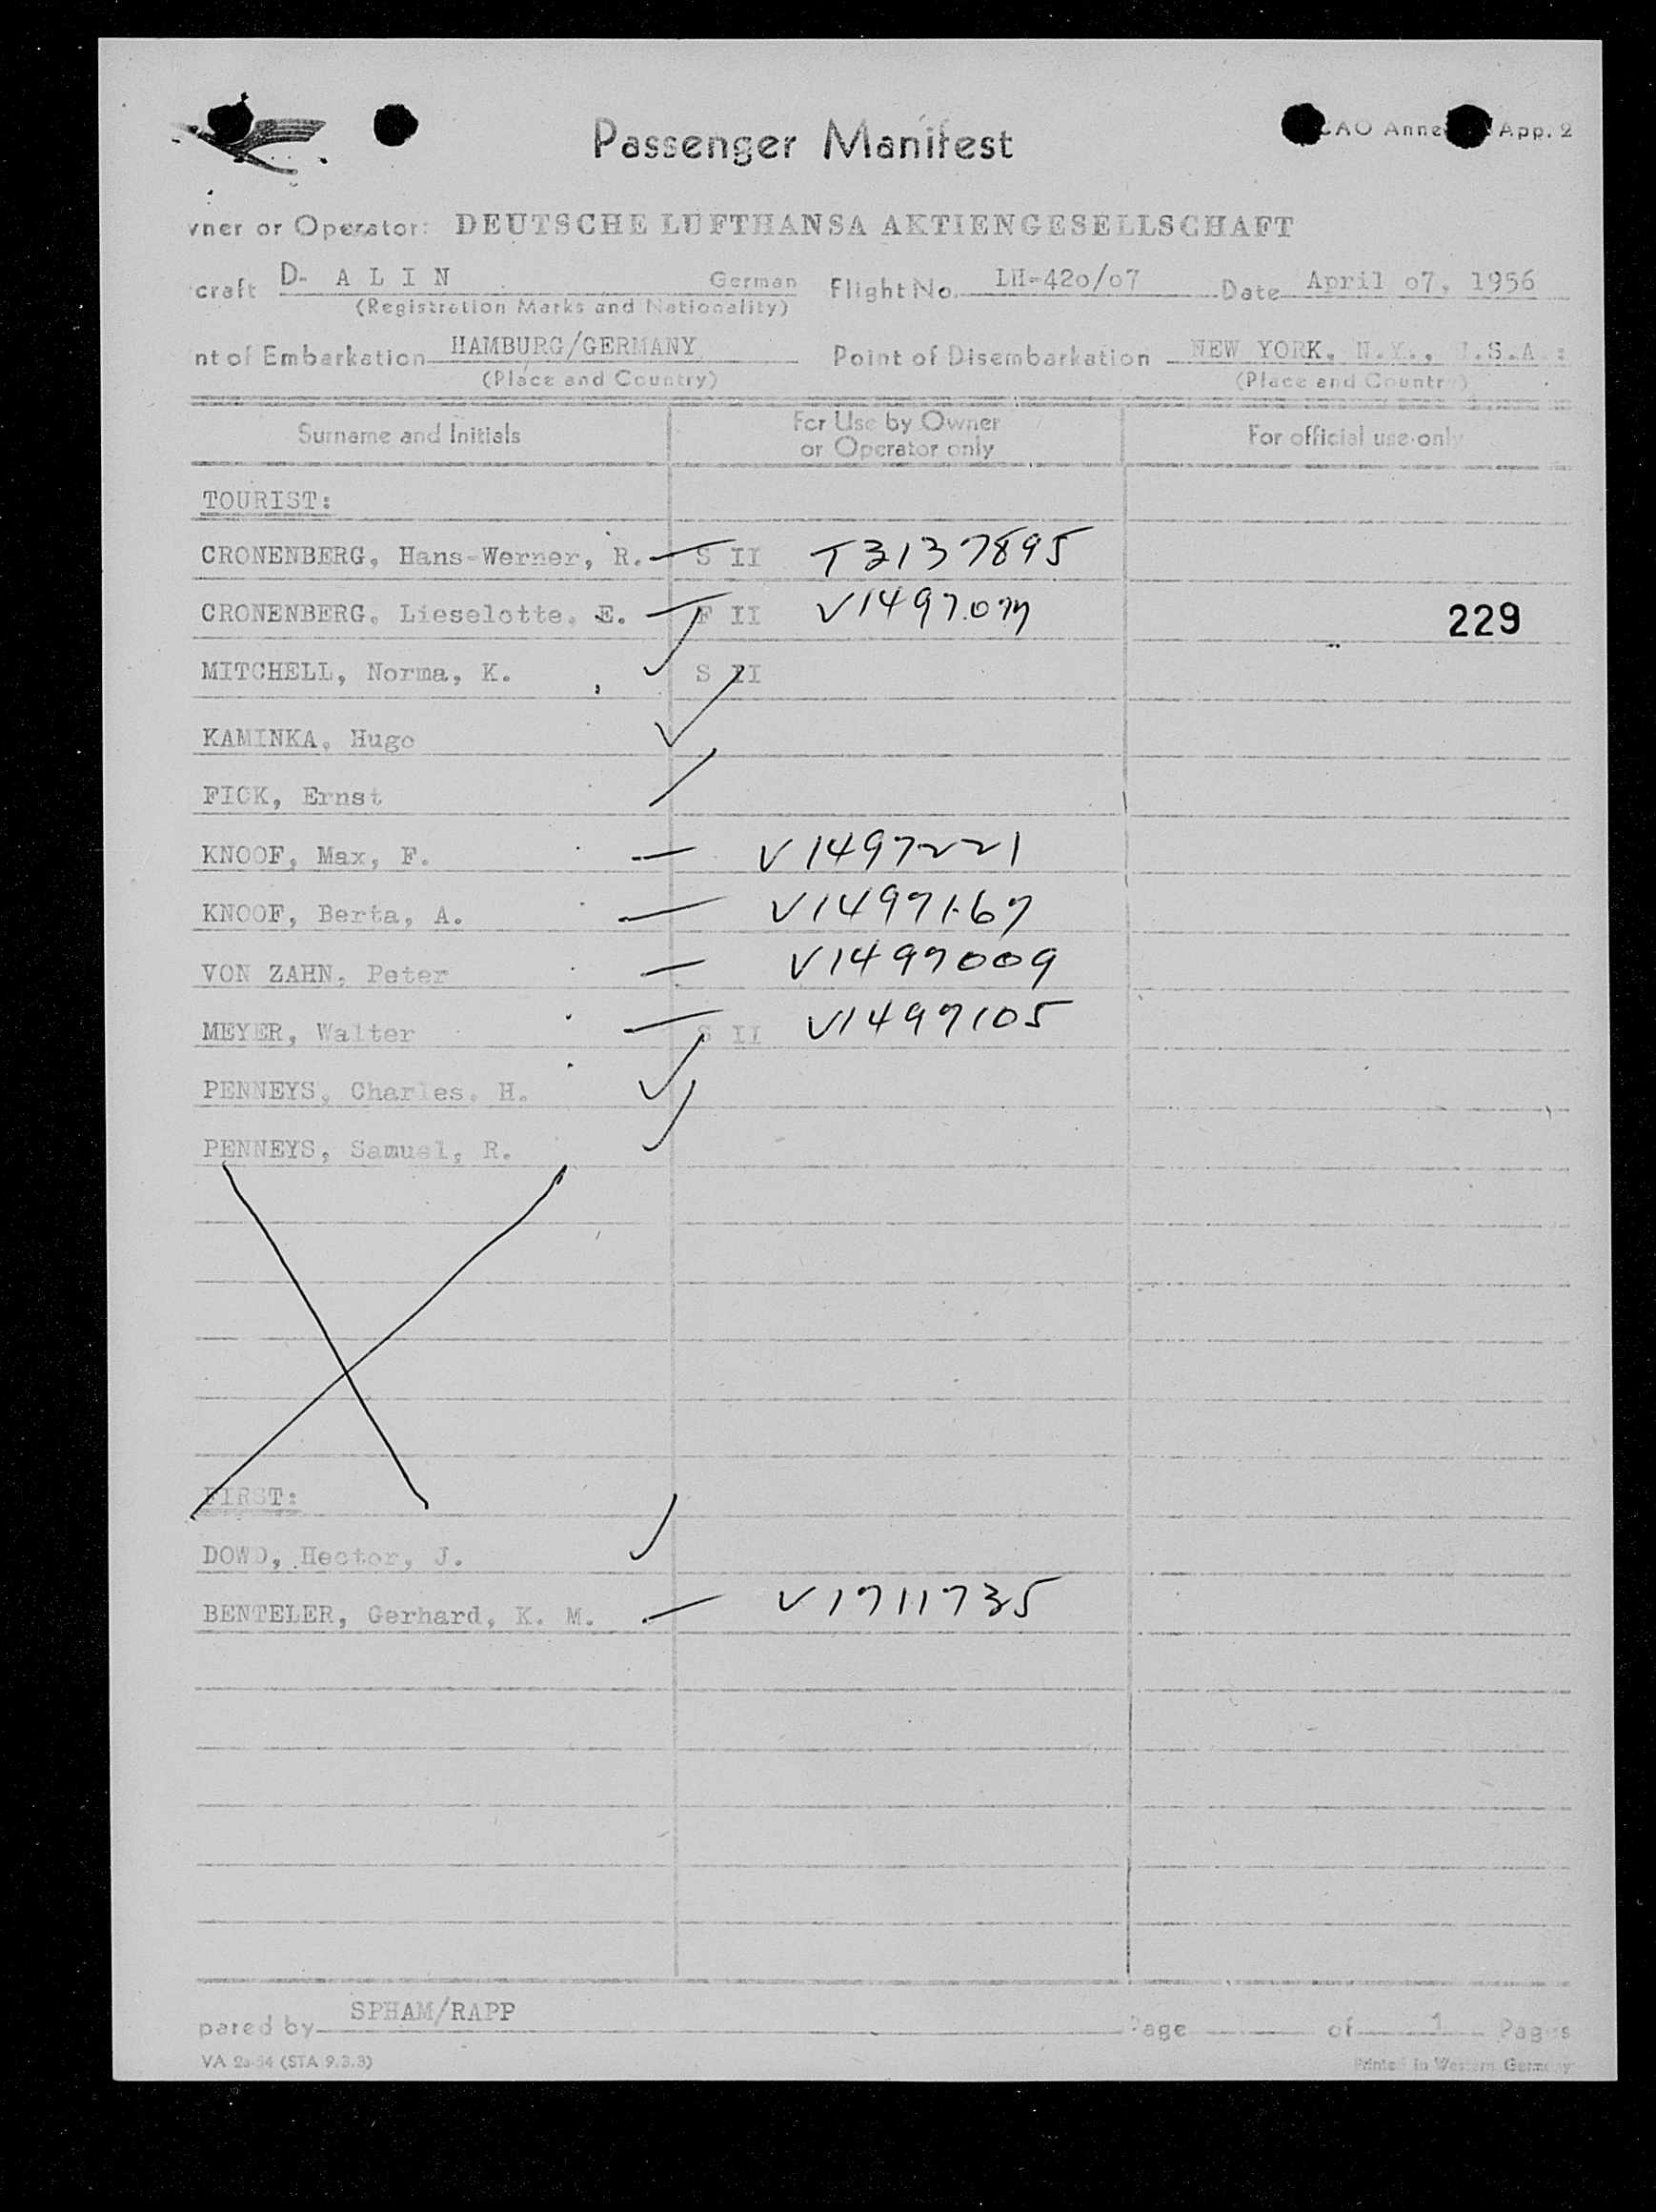 Passenger Manifest
CAO Anne App. 2
wner or Operator: DEUTSCHE LUFTHANSA AKTIENGESELLSCHAFT
craft D- A L I N German Flight No. LH-42o/o7 Date April o7, 1956
(Registration Marks and Nationality)
nt of Embarkation HAMBURG/GERMANY Point of Disembarkation NEW YORK, N.Y., U.S.A.:
(Place and Country) (Place and Country)
Surname and Initials For Use by Owner or Operator only For official use only
TOURIST:
CRONENBERG, Hans-Werner, R. S II T3137895
CRONENBERG, Lieselotte, E. F II 229
MITCHELL, Norma, K. S II
KAMINKA, Hugo
FICK, Ernst
KNOOF, Max, F. V1497221
KNOOF, Berta, A. V1497167
VON ZAHN, Peter V1497009
MEYER, Walter S II V1497105
PENNEYS, Charles, H.
PENNEYS, Samuel, R.
FIRST:
DOWD, Hector, J.
BENTELER, Gerhard, K. M. V1711735
pared by SPHAM/RAPP Page of 1 Pages
VA 2a-54 (STA 9.3.3) Printed in Western Germany